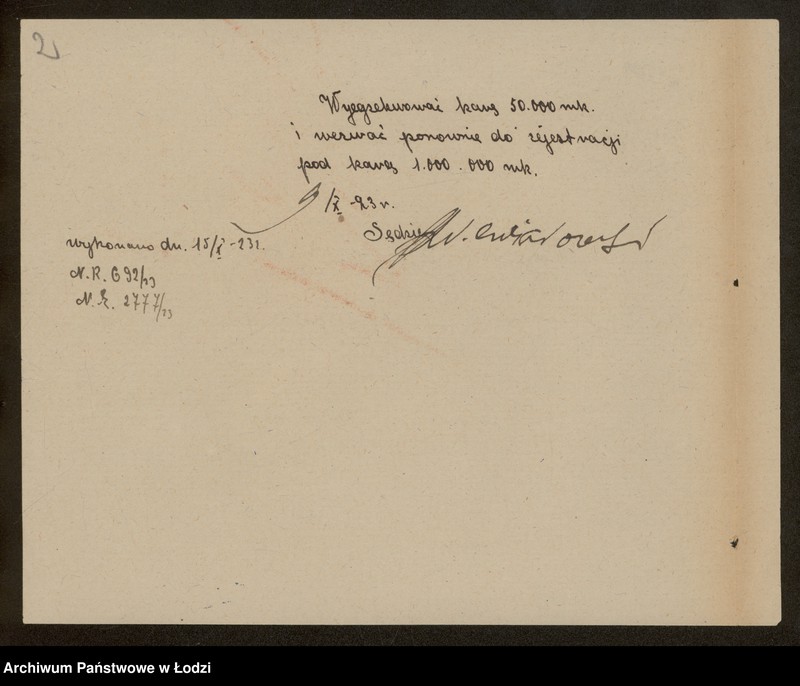 2
Wyegzekwować karę 50.000 mk.
i wezwać ponownie do rejestracji
pod karą 1.000.000 mk.
9/X -23 r.
Sędzia
wykonano dn. 15/X -23 r.
N. R. 692/23
N. 2777/23
Archiwum Państwowe w Łodzi